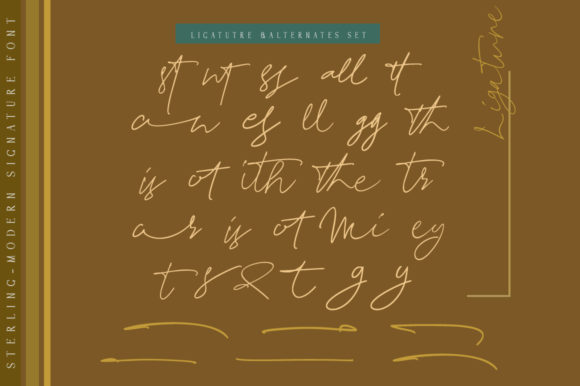 LIGATUTRE &ALTERNATES SET
st nt ss all tt
an es ll gg th
is ot ith the tr
ar is ot Mi ey
t s & t g y
Ligature
STERLING-MODERN SIGNATURE FONT